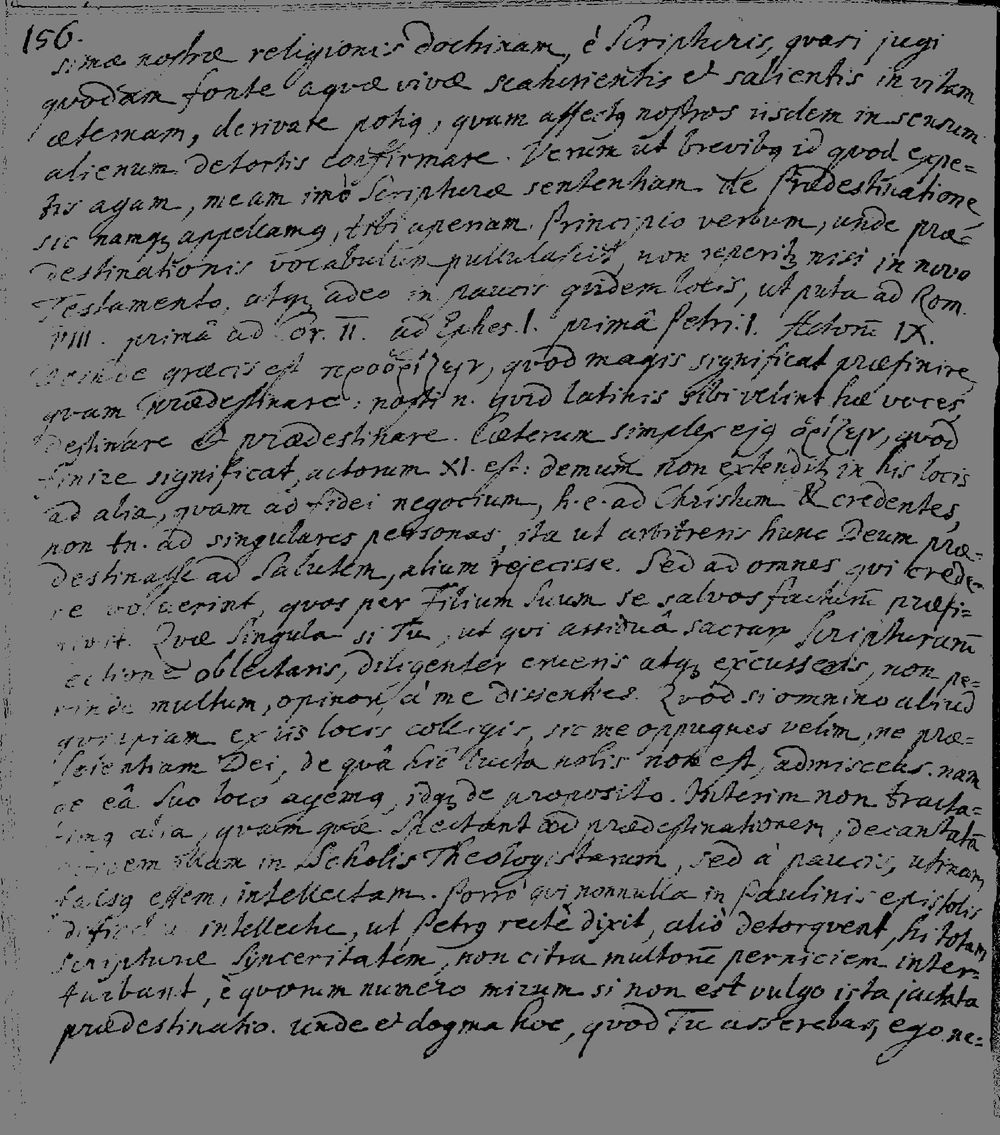 156.
simæ nostræ religionis doctrinam, è Scripturis, quasi jugi
quodam fonte aquæ vivæ scaturientis et salientis in vitam
æternam, derivare potiq, quam affectq nostros iisdem in sensum
alienum detortis confirmare. Verum ut brevibq id quod expe=
tis agam, meam imò Scripturæ sententiam de Prædestinatione,
sic namqꝫ appellamq, tibi aperiam. Principio verbum, unde præ=
destinationis vocabulum pullulascit, non reperitꝫ nisi in novo
Testamento, atqꝫ adeo in paucis quidem locis, ut puta ad Rom.
VIII. primâ ad Cor. II. ad Ephes. I. primâ Petri. I. Actorū IX.
græcis est προὁρίζειν, quod magis significat præfinire,
quam prædestinare: nosti n. quid latinis sibi velint hæ voces,
destinare et prædestinare. Cæterum simplex ejq ὁρίζειν, quod
finire significat, actorum XI. est: demum non extenditꝫ in his locis
ad alia, quam ad fidei negocium, h. e. ad Christum & credentes,
non tn. ad singulares personas, ita ut arbitreris hunc Deum præ=
destinasse ad Salutem, alium rejecisse. Sed ad omnes qui crede=
re voluerint, quos per Filium suum se salvos facturū præfi=
nivit. Quæ singula si Tu, ut qui assiduâ sacrarū Scripturarū
lectione oblectaris, diligenter erueris atqꝫ excusseris, non pe=
rinde multum, opinor, à me dissenties. Quòd si omnino aliud
quippiam ex iis locis colligis, sic me oppugnes velim, ne præ=
scientiam Dei, de quâ hîc lucta nobis non est, admisceas. nam
de eâ suo loco agemq, idqꝫ de proposito. Interim non tracta=
bimq alia, quam quæ spectant ad prædestinationem, decantatā
quidem illam in Scholis Theologistarum, sed à paucis, utinam
falsq essem, intellectam. Porrò qui nonnulla in Paulinis epistolis
difficilia intellectu, ut Petrq rectè dixit, aliò detorquent, hi totam
scripturæ synceritatem, non citra multorū perniciem inter=
turbant, è quorum numero mirum si non est vulgo ista jactata
prædestinatio. Unde et dogma hoc, quod Tu asserebas, ego ne=